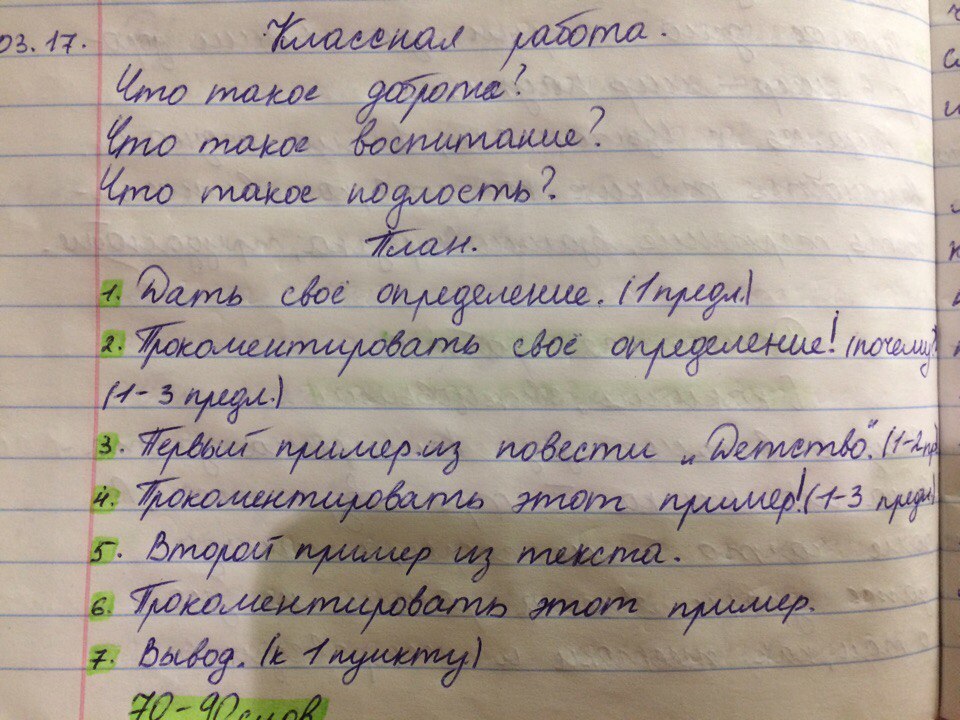 03.17. Классная работа.
Что такое доброта?
Что такое воспитание?
Что такое подлость?
План.
1. Дать своё определение. (1 предл.)
2. Прокоментировать своё определение! (почему?
(1-3 предл.)
3. Первый пример из повести „Детство". (1-2 пр
4. Прокоментировать этот пример! (1-3 предл)
5. Второй пример из текста.
6. Прокоментировать этот пример.
7. Вывод. (к 1 пункту)
70-90 слов